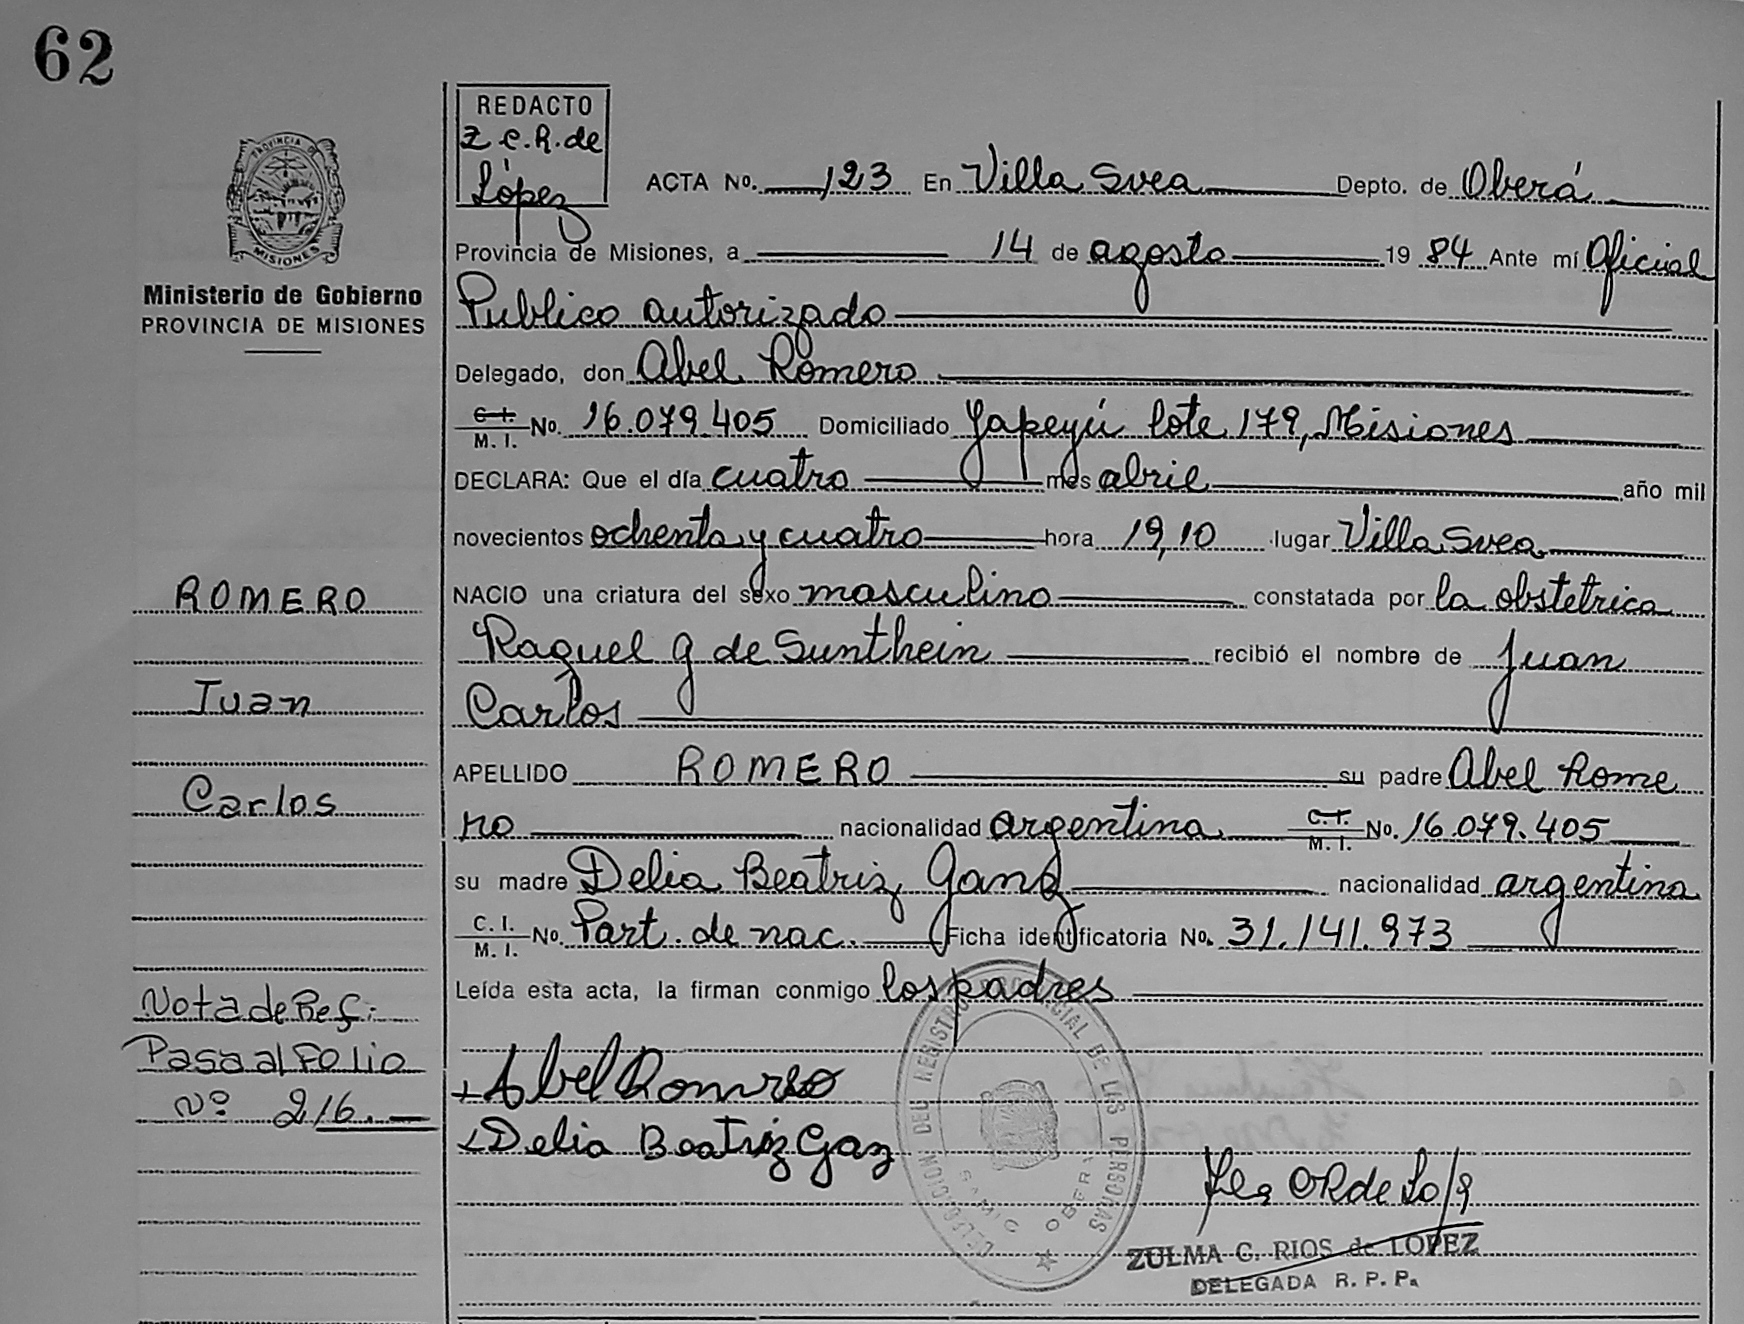 62
REDACTO
Z C. R. de
López
ACTA No. 123 En Villa Svea Depto. de Oberá
PROVINCIA DE
MISIONES
Ministerio de Gobierno
PROVINCIA DE MISIONES
Provincia de Misiones, a 14 de agosto 1984 Ante mí Oficial
Publico autorizado
Delegado, don Abel Romero
C. I.
M. I. No. 16.079.405 Domiciliado Yapeyú lote 179, Misiones
DECLARA: Que el día cuatro mes abril año mil
novecientos ochenta y cuatro hora 19,10 lugar Villa Svea
NACIO una criatura del sexo masculino constatada por la obstetrica
Raquel G de Sunthein recibió el nombre de Juan
Carlos
APELLIDO ROMERO su padre Abel Rome
ro nacionalidad argentina C. I.
M. I. No. 16.079.405
su madre Delia Beatriz Ganz nacionalidad argentina
C. I.
M. I. No. Part. de nac. Ficha identificatoria No. 31.141.973
Leída esta acta, la firman conmigo los padres
Abel Romero
Delia Beatriz Gaz
ROMERO
Juan
Carlos
Nota de Ref:
Pasa al Folio
Nº 216.
DEL REGISTRO PROVINCIAL DE LAS PERSONAS
SAMIC OBERA
ZULMA C. RIOS de LOPEZ
DELEGADA R. P. P.